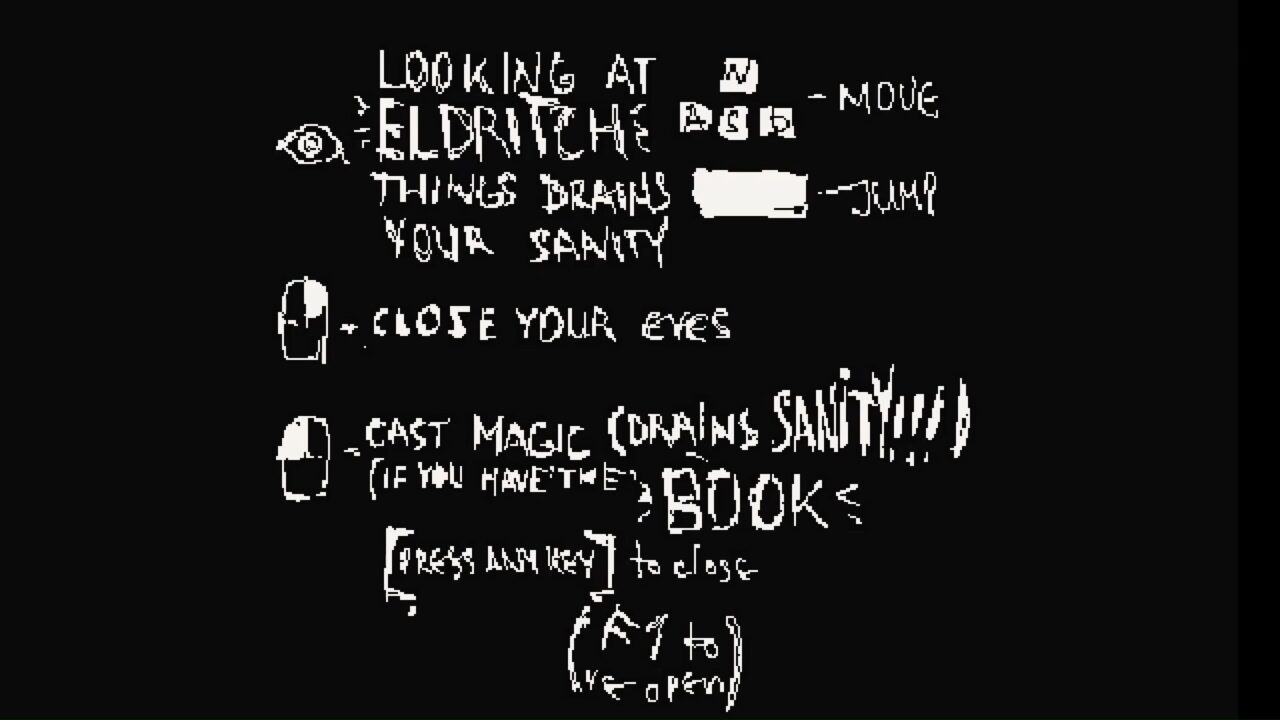 LOOKING AT
ELDRITCH
THINGS DRAINS
YOUR SANITY
W
A S D
- MOVE
- JUMP
- CLOSE YOUR EYES
- CAST MAGIC (DRAINS SANITY!!!)
(IF YOU HAVE THE
BOOK
[PRESS ANY KEY] to close
(F1 to
re-open)